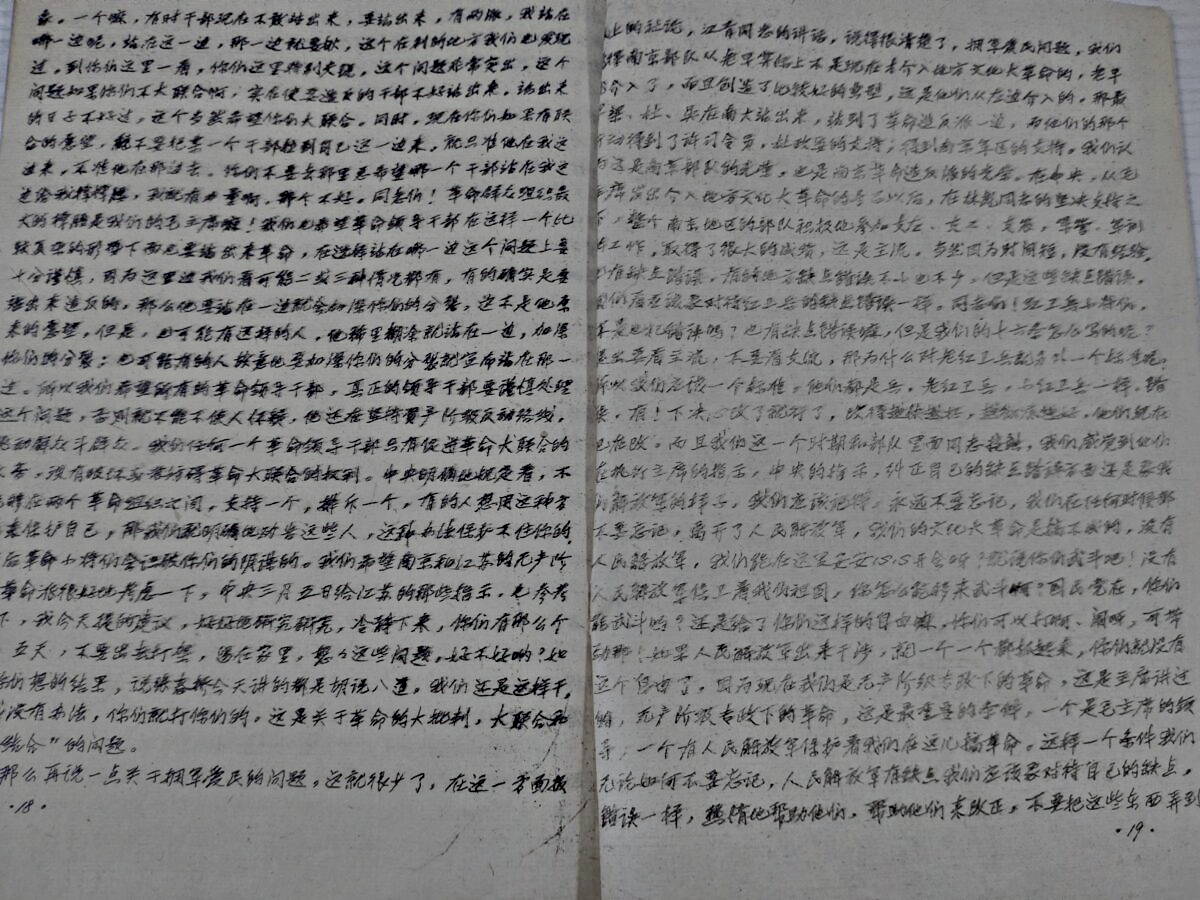 象。一个嘛，有时干部现在不敢站出来，要站出来，有两派，我站在
哪一边呢，站在这一边，那一边就要砍，这个在别的地方我们也发现
过，到你们这里一看，你们这里特别尖锐，这个问题非常突出，这个
问题如果你们不大联合啊，实在使要造反的干部不好站出来，站出来
的日子不好过，这个当然希望你们大联合。同时，现在你们如果有联
合的愿望，就不要把某一个干部拉到自己这一边来，就只准他在我这
边来，不准他在那边去。给你们不要去那里总希望哪一个干部站在我这
边给我撑撑腰，我就有力量啊。那个不好。同志们！革命群众组织最
大的撑腰是我们的毛主席嘛！我们也希望革命领导干部在这样一个比
较复杂的形势下面也要站出来革命，在选择站在哪一边这个问题上要
十分谨慎，因为这里边我们看可能二或三种情况都有，有的确实是要
站出来造反的，那么他要站在一边就会加深你们的分裂，这不是他原
来的愿望，但是，也可能有这样的人，他稀里糊涂就站在一边，加深
你们的分裂；也可能有的人故意地要加深你们的分裂就宣布站在那一
边。所以我们希望所有的革命领导干部，真正的领导干部要谨慎处理
这个问题，否则就不能不使人怀疑，他还在坚持资产阶级反动路线，
挑动群众斗群众。我们任何一个革命领导干部只有促进革命大联合的
义务，没有破坏或者妨碍革命大联合的权利。中央明确地规定着，不
能在两个革命组织之间，支持一个，排斥一个，有的人想用这种方
法来保护自己，那我们就明确地劝告这些人，这种办法保护不住你的，
后革命小将们会识破你们的阴谋的。我们希望南京和江苏的无产阶
革命派很好地考虑一下，中央三月五日给江苏的那些指示，也参考
下，我今天提的建议，好好地研究研究，冷静下来，你们有那么个
五天，不要出去打架，留在家里，想想这些问题，好不好哟？如
你们想的结果，说张春桥今天讲的都是胡说八道，我们还是这样干，
没有办法，你们就打你们的。这是关于革命的大批判，大联合和
结合”的问题。
那么再说一点关于拥军爱民的问题。这就很少了，在这一方面报
·18·
上的社论，江青同志的讲话，说得很清楚了，拥军爱民问题，我们
觉得南京部队从老早实际上不是现在才介入地方文化大革命的，老早
介入了，而且创造了比较好的典型，这是他们从左边介入的。那最
早梁、杜、吴在南大站出来，站到了革命造反派一边，而他们的那个
行动得到了许司令员，杜政委的支持；得到南京军区的支持。我们认
为这是南京部队的光荣，也是南京革命造反派的光荣。在中央，从毛
主席发出介入地方文化大革命的号召以后，在林彪同志的坚决支持之
下，整个南京地区的部队积极地参加支左、支工、支农，军管、军训
工作，取得了很大的成绩，这是主流。当然因为时间短，没有经验，
也有缺点错误，有的地方缺点错误不小也不少，但是这些缺点错误，
我们应当该要对待红卫兵的缺点错误一样。同志们！红卫兵小将们，
不是也犯错误吗？也有缺点错误嘛，但是我们的十六条怎么写的呢？
是出要看主流，不要看支流，那为什么对老红卫兵就另外一个标准呢？
所以我们应该一个标准。他们都是兵，老红卫兵，小红卫兵一样。错
误，有！下决心改了就行了，改得越快越好，越彻底越好。他们现在
也在改。而且我们这一个时期和部队里面同志接触，我们感觉到他们
在执行主席的指示，中央的指示，纠正自己的缺点错误方面还是象我
们解放军的样子，我们应该记得，永远不要忘记，我们在任何时候都
不要忘记，离开了人民解放军，我们的文化大革命是搞不成的，没有
人民解放军，我们能在这里安安心心开会呀？就说你们武斗吧！没有
人民解放军保卫着我们祖国，你怎么能够来武斗啊？国民党在，你们
能武斗吗？还是给了你们这样的自由嘛，你们可以打啊、闹啊，可带
劲那！如果人民解放军出来干涉，把一个一个都抓起来，你们就没有
这个自由了，因为现在我们是无产阶级专政下的革命，这是主席讲过
嘛，无产阶级专政下的革命，这是最重要的条件，一个是毛主席的领
导；一个有人民解放军保护着我们在这儿搞革命。这样一个条件我们
无论如何不要忘记，人民解放军有缺点我们应该要对待自己的缺点，
错误一样，热情地帮助他们，帮助他们来改正。不要把这些东西弄到
·19·